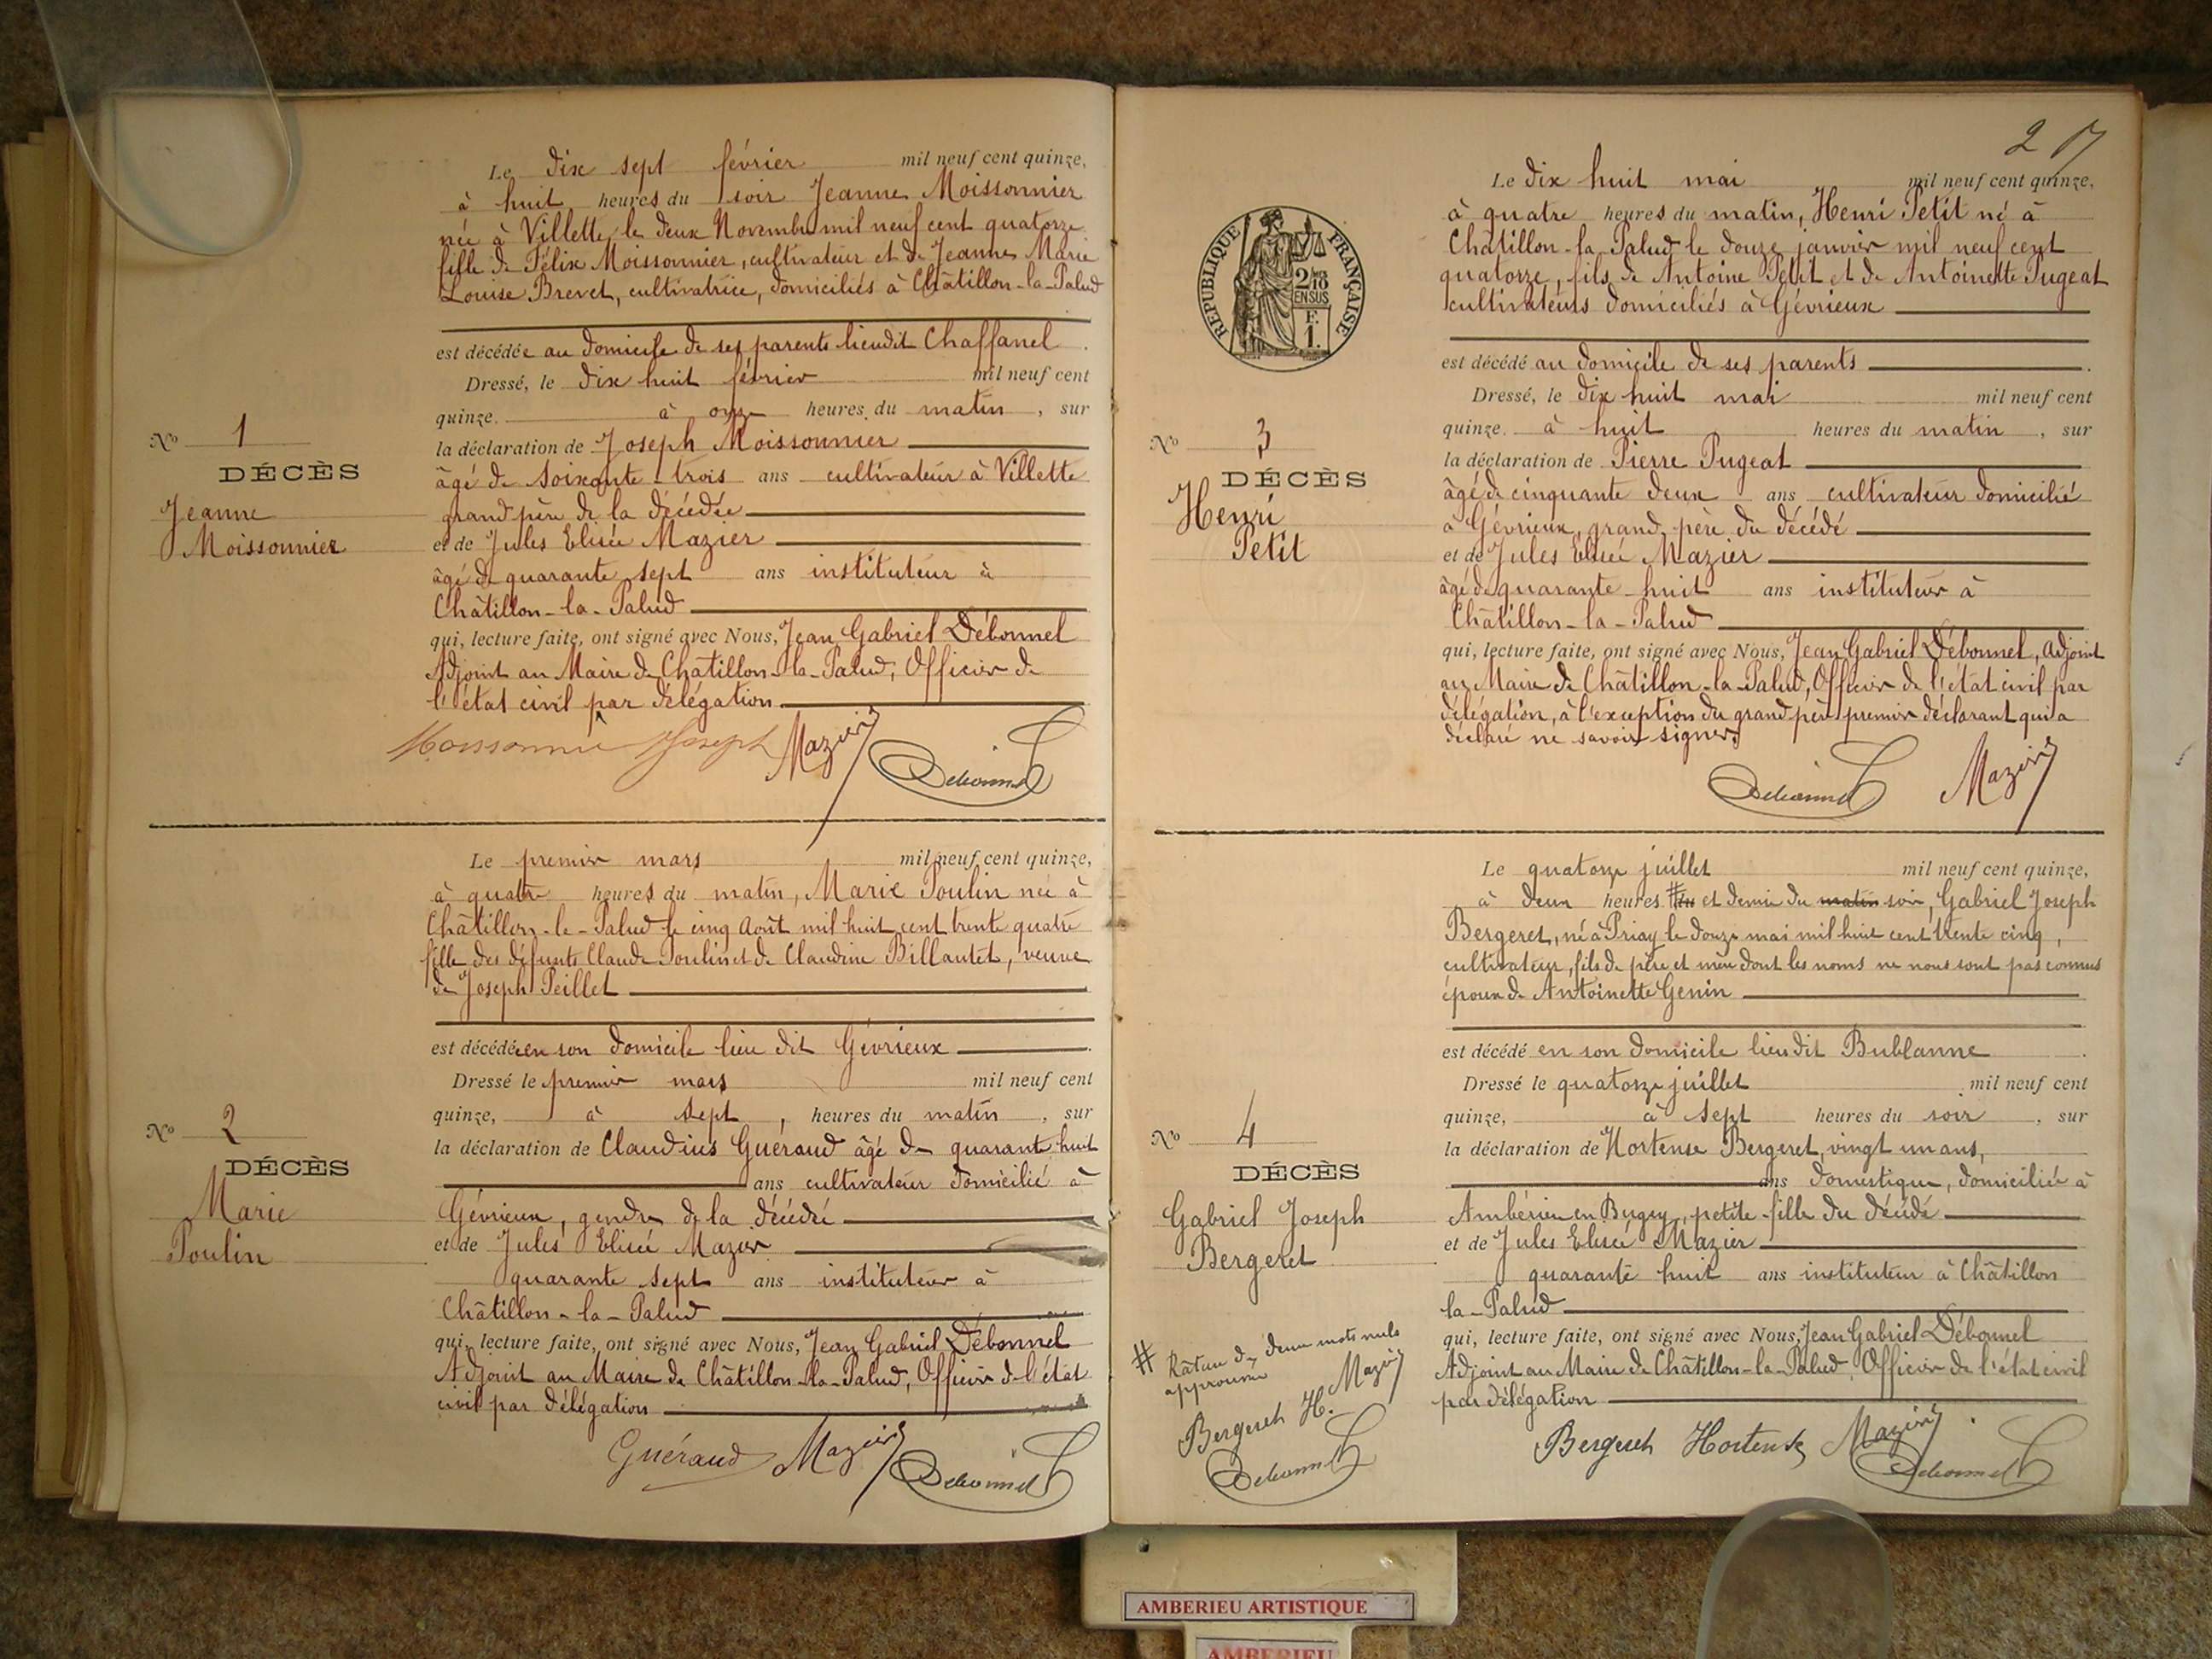 Le dix sept février mil neuf cent quinze,
à huit heures du soir Jeanne Moissonnier
née à Villette le deux Novembre mil neuf cent quatorze
fille de Félix Moissonnier, cultivateur et de Jeanne Marie
Louise Brevet, cultivatrice, domiciliés à Châtillon-la-Palud
est décédée au domicile de ses parents lieudit Chaffanel.
Dressé, le dix huit février mil neuf cent
quinze. à onze heures du matin, sur
la déclaration de Joseph Moissonnier
âgé de soixante-trois ans cultivateur à Villette
grand père de la décédée
et de Jules Elisée Mazier
âgé de quarante sept ans instituteur à
Châtillon-la-Palud
qui, lecture faite, ont signé avec Nous, Jean Gabriel Débonnel
Adjoint au Maire de Châtillon-la-Palud, Officier de
l'état civil par délégation
Moissonnie Joseph Mazier Débonnel
No 1
DÉCÈS
Jeanne
Moissonnier
Le premier mars mil neuf cent quinze,
à quatre heures du matin, Marie Poulin née à
Châtillon-la-Palud le cinq Août mil huit cent trente quatre
fille des défunts Claude Poulin et de Claudine Billautet, veuve
de Joseph Peillet
est décédée en son domicile lieu dit Gévrieux
Dressé le premier mars mil neuf cent
quinze, à sept, heures du matin, sur
la déclaration de Claudius Guéraud âgé de quarante huit
ans cultivateur domicilié à
Gévrieux, gendre de la décédée
et de Jules Elisée Mazier
quarante sept ans instituteur à
Châtillon-la-Palud
qui, lecture faite, ont signé avec Nous, Jean Gabriel Débonnel
Adjoint au Maire de Châtillon-la-Palud, Officier de l'état
civil par délégation
Guéraud Mazier Débonnel
No 2
DÉCÈS
Marie
Poulin
2
Le dix huit mai mil neuf cent quinze,
à quatre heures du matin, Henri Petit né à
Châtillon-la-Palud le douze janvier mil neuf cent
quatorze, fils de Antoine Petit et de Antoinette Pugeat
cultivateurs domiciliés à Gévrieux
est décédé au domicile de ses parents.
Dressé, le dix huit mai mil neuf cent
quinze. à huit heures du matin, sur
la déclaration de Pierre Pugeat
âgé de cinquante deux ans cultivateur domicilié
à Gévrieux, grand père du décédé
et de Jules Elisée Mazier
âgé de quarante-huit ans instituteur à
Châtillon-la-Palud
qui, lecture faite, ont signé avec Nous, Jean Gabriel Débonnel, Adjoint
au Maire de Châtillon-la-Palud, Officier de l'état civil par
délégation, à l'exception du grand père premier déclarant qui a
déclaré ne savoir signer.
Débonnel Mazier
RÉPUBLIQUE FRANÇAISE
2/10
EN SUS
F.
1.
No 3
DÉCÈS
Henri
Petit
Le quatorze juillet mil neuf cent quinze,
à deux heures # du et demie du matin soir, Gabriel Joseph
Bergeret, né à Priay le douze mai mil huit cent trente cinq,
cultivateur, fils de père et mère dont les noms ne nous sont pas connus
époux de Antoinette Genin
est décédé en son domicile lieu dit Bublanne.
Dressé le quatorze juillet mil neuf cent
quinze, à sept heures du soir, sur
la déclaration de Hortense Bergeret, vingt un ans,
ans domestique, domiciliée à
Ambérieu en Bugey, petite-fille du décédé
et de Jules Elisée Mazier
quarante huit ans instituteur à Châtillon
la-Palud
qui, lecture faite, ont signé avec Nous, Jean Gabriel Débonnel
Adjoint au Maire de Châtillon-la-Palud, Officier de l'état civil
par délégation
Bergeret Hortense Mazier Débonnel
No 4
DÉCÈS
Gabriel Joseph
Bergeret
# Rature de deux mots nuls
approuvée
Mazier
Bergeret H.
Débonnel
AMBERIEU ARTISTIQUE
AMBERIEU